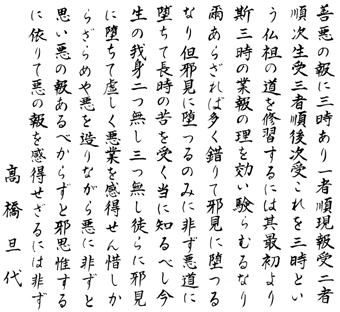 善悪の報に三時あり一者順現報受二者
順次生受三者順後次受これを三時とい
う仏祖の道を修習するには其最初より
斯三時の業報の理を効い験らむるなり
爾あらざれば多く錯りて邪見に堕つる
なり但邪見に堕つるのみに非ず悪道に
堕ちて長時の苦を受く当に知るべし今
生の我身二つ無し三つ無し徒らに邪見
に堕ちて虚しく悪業を感得せん惜しか
らざらめや悪を造りながら悪に非ずと
思い悪の報あるべからずと邪思惟する
に依りて悪の報を感得せざるには非ず
高橋旦代